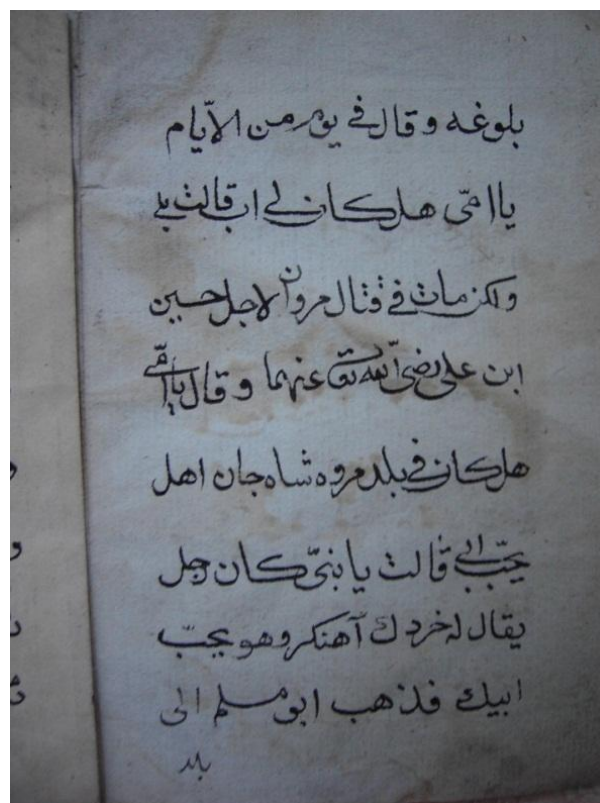 بلوغه وقال في يوم من الايّام
يا امّي هل كان لي اب قالت بلى
ولكن مات في قتال مروان لاجل حسين
ابن على رضىّ الله تعا عنهما وقال يا امّي
هل كان في بلد مروه شاه جان اهل
يحبّ ابى قالت يا بنىّ كان رجل
يقال له خردك آهنكر وهو يحبّ
ابيك فذهب ابو مسلم الى
بلد